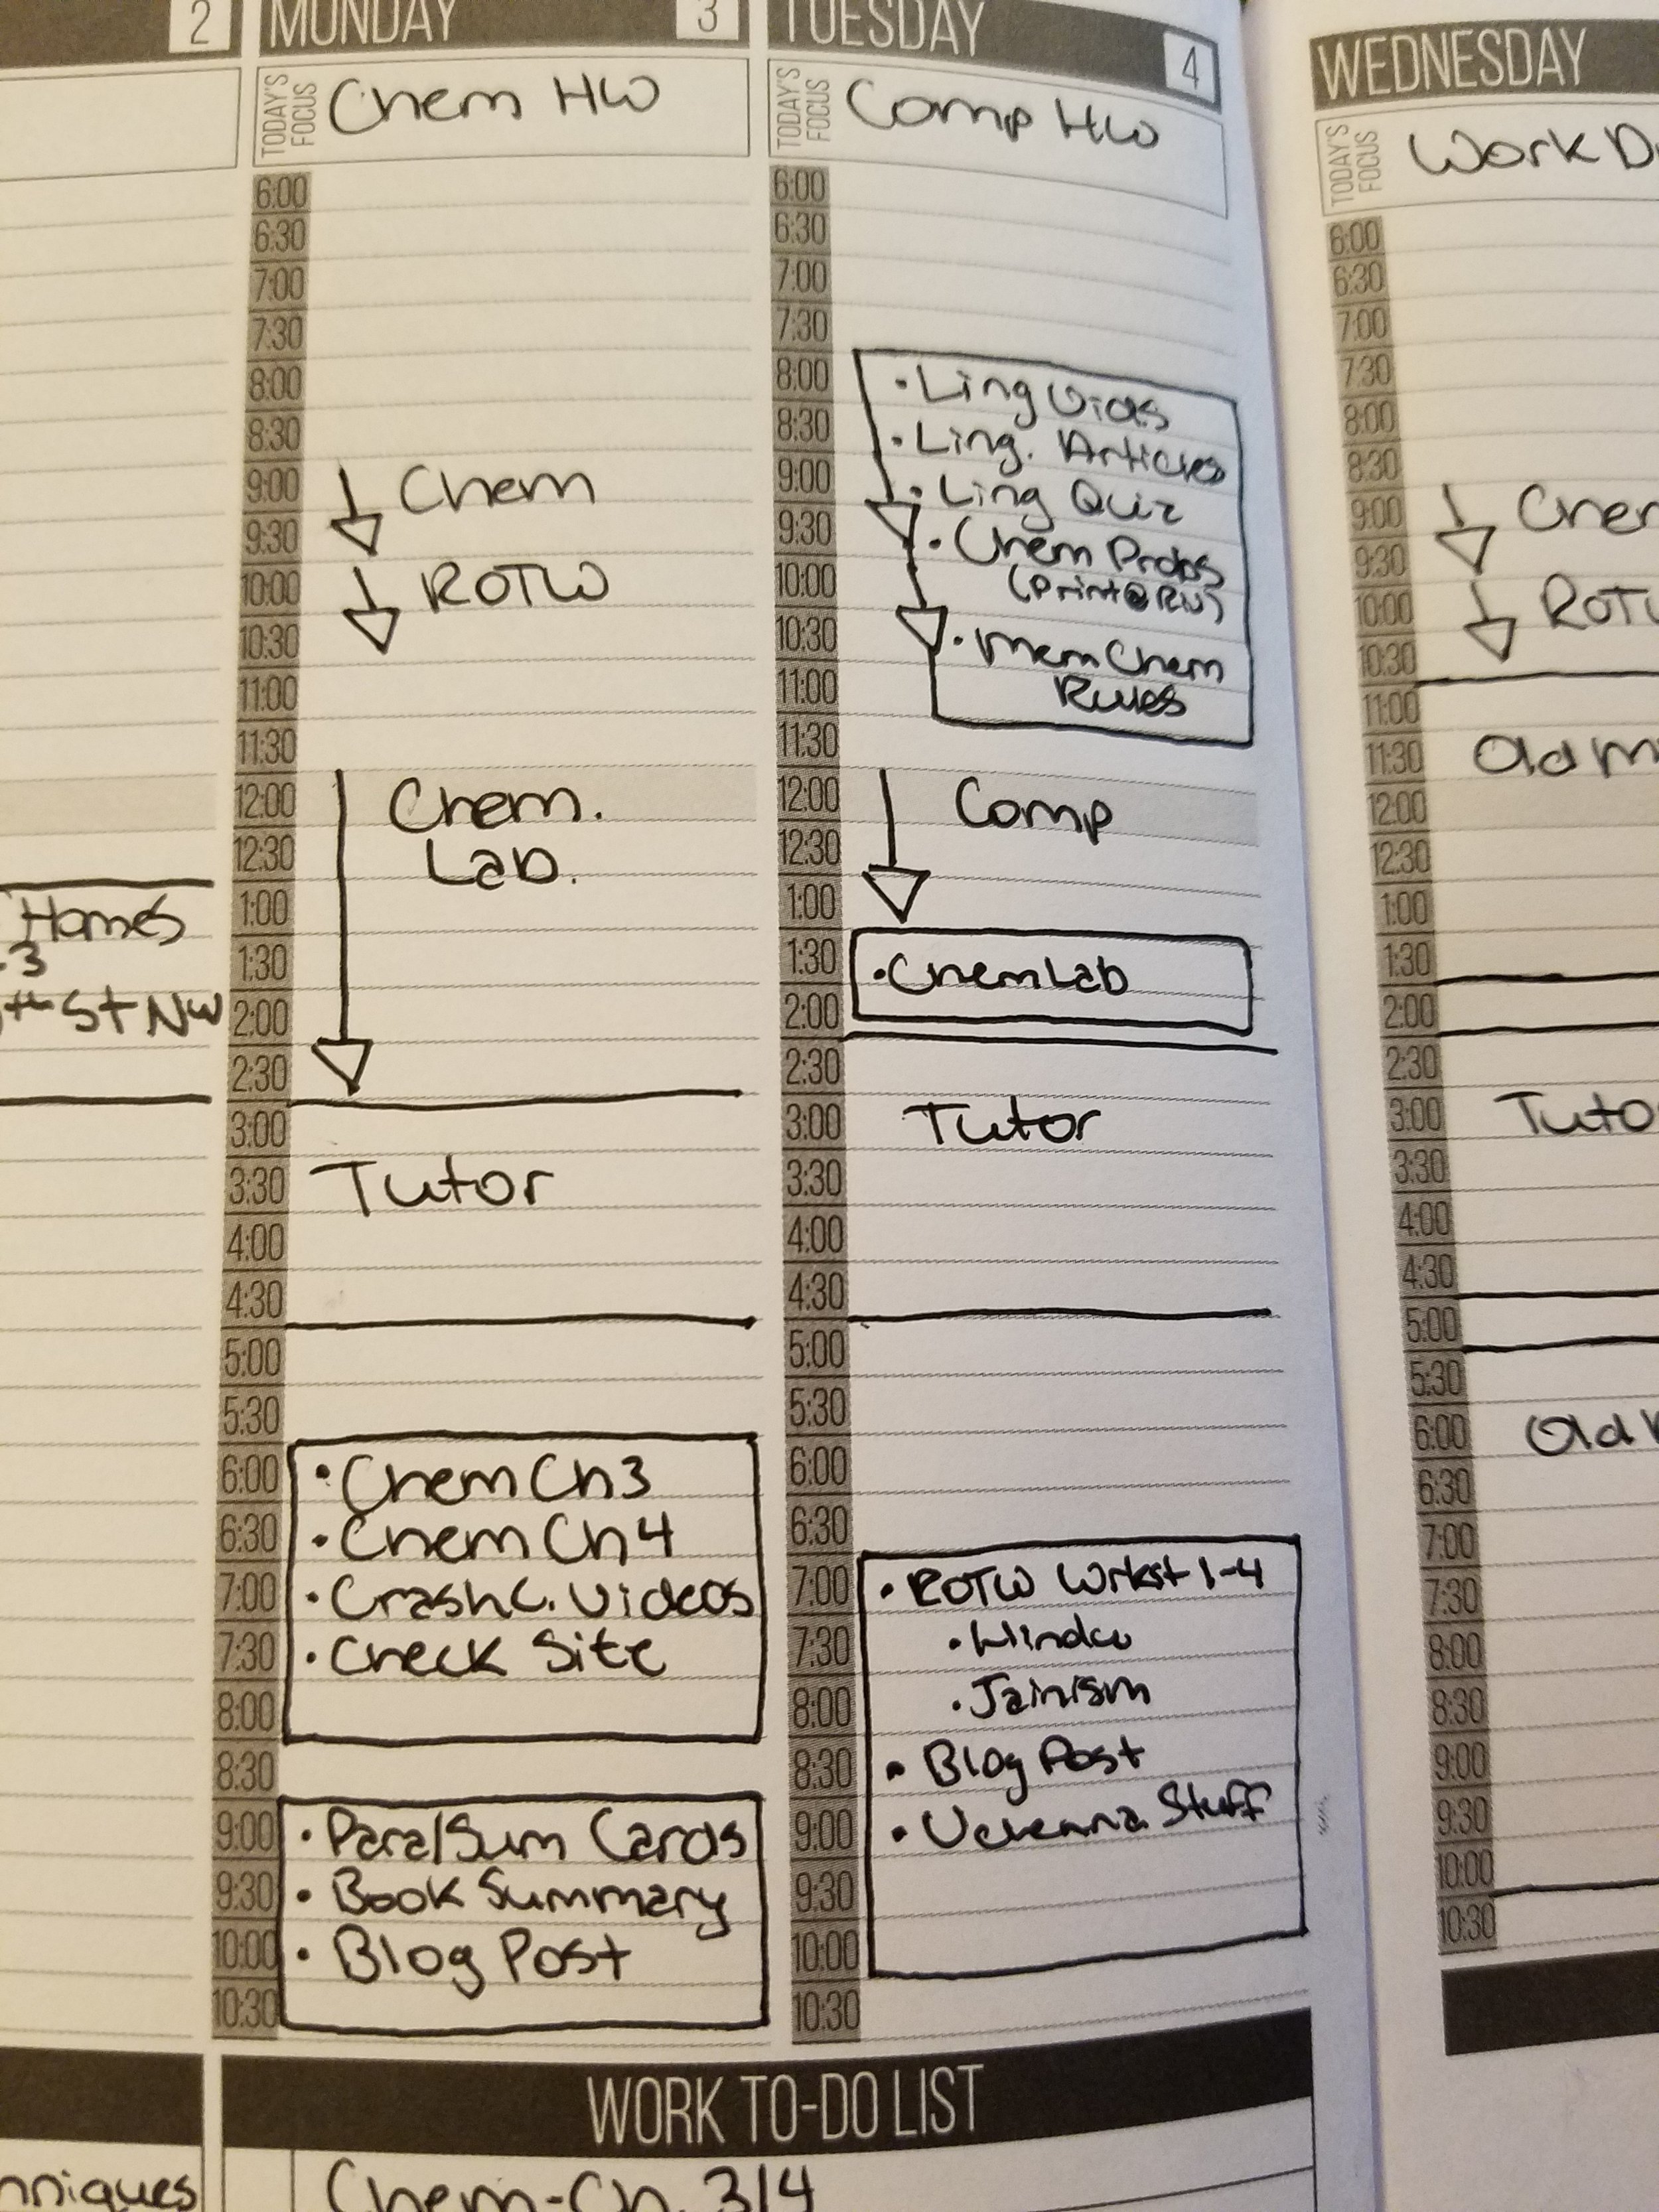 2
Homes
.3
th St NW
nniques
MONDAY
3
TODAY'S
FOCUS
Chem HW
6:00
6:30
7:00
7:30
8:00
8:30
9:00 Chem
9:30
10:00 ROTW
10:30
11:00
11:30
12:00 Chem.
12:30 Lab.
1:00
1:30
2:00
2:30
3:00
3:30 Tutor
4:00
4:30
5:00
5:30
6:00 • Chem Ch3
6:30 • Chem Ch4
7:00 • Crash C. Videos
7:30 • Check Site
8:00
8:30
9:00 • Para/Sum Cards
9:30 • Book Summary
10:00 • Blog Post
10:30
TUESDAY
4
TODAY'S
FOCUS
Comp HW
6:00
6:30
7:00
7:30
8:00 • Ling Vids
8:30 • Ling. Articles
9:00 • Ling Quiz
9:30 • Chem Probs
10:00 (Print@RW)
10:30 • Mem Chem
11:00 Rules
11:30
12:00 Comp
12:30
1:00
1:30 • Chem Lab
2:00
2:30
3:00 Tutor
3:30
4:00
4:30
5:00
5:30
6:00
6:30
7:00 • ROTW Wrkst 1-4
7:30 • Hindu
8:00 • Jainism
8:30 • Blog Post
9:00 Stuff
9:30
10:00
10:30
WORK TO-DO LIST
Chem-Ch. 3/4
WEDNESDAY
TODAY'S
FOCUS
Work D
6:00
6:30
7:00
7:30
8:00
8:30
9:00 Chem
9:30
10:00 ROTW
10:30
11:00
11:30 Old M
12:00
12:30
1:00
1:30
2:00
2:30
3:00 Tuto
3:30
4:00
4:30
5:00
5:30
6:00 Old
6:30
7:00
7:30
8:00
8:30
9:00
9:30
10:00
10:30